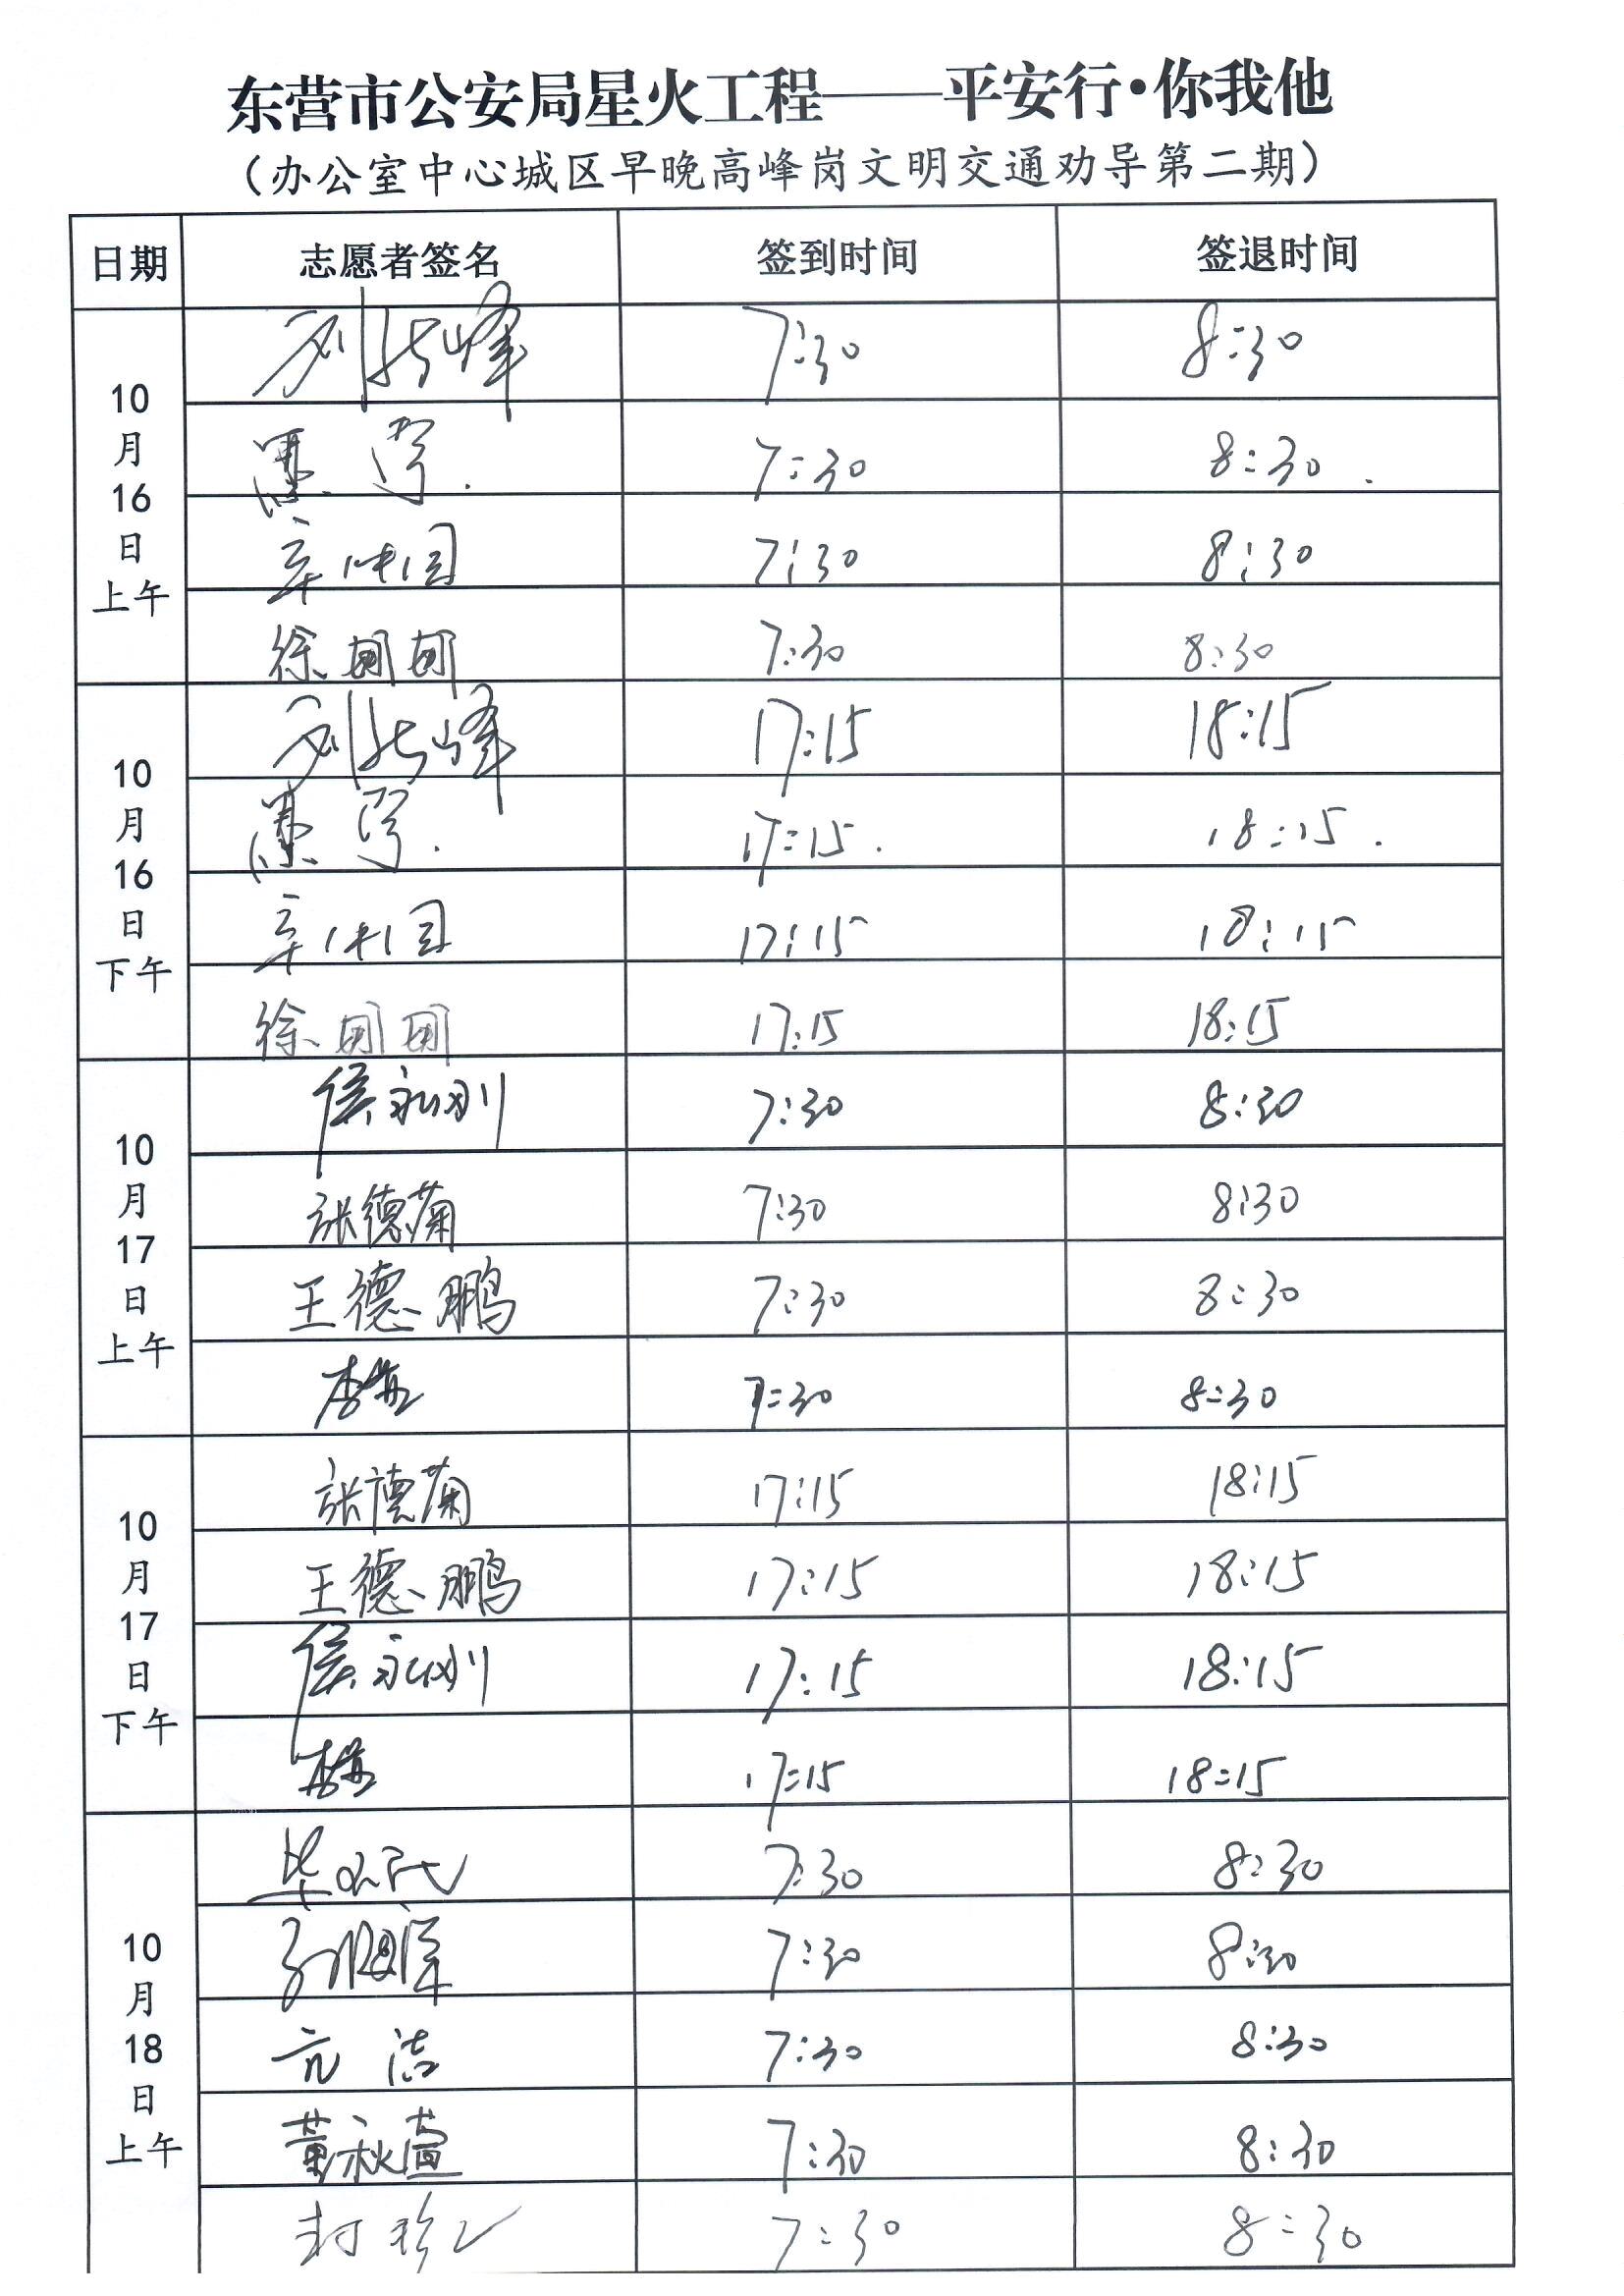 东营市公安局星火工程——平安行·你我他
（办公室中心城区早晚高峰岗文明交通劝导第二期）
日期 志愿者签名 签到时间 签退时间
10月16日上午
峰 7:30 8:30
7:30 8:30.
7:30 8:30
徐 7:30 8:30
10月16日下午
峰 17:15 18:15
17:15. 18:15.
17:15 18:15
徐 17:15 18:15
10月17日上午
侯永刚 7:30 8:30
张德菊 7:30 8:30
王德鹏 7:30 8:30
李 7:30 8:30
10月17日下午
张德菊 17:15 18:15
王德鹏 17:15 18:15
侯永刚 17:15 18:15
李 17:15 18:15
10月18日上午
7:30 8:30
7:30 8:30
亓洁 7:30 8:30
董秋萱 7:30 8:30
封 7:30 8:30